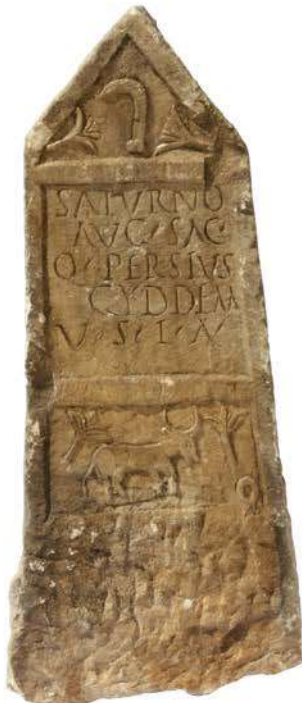 SATVRNO
AVG SAC
Q PERSIVS
CYDDEM
V S L A